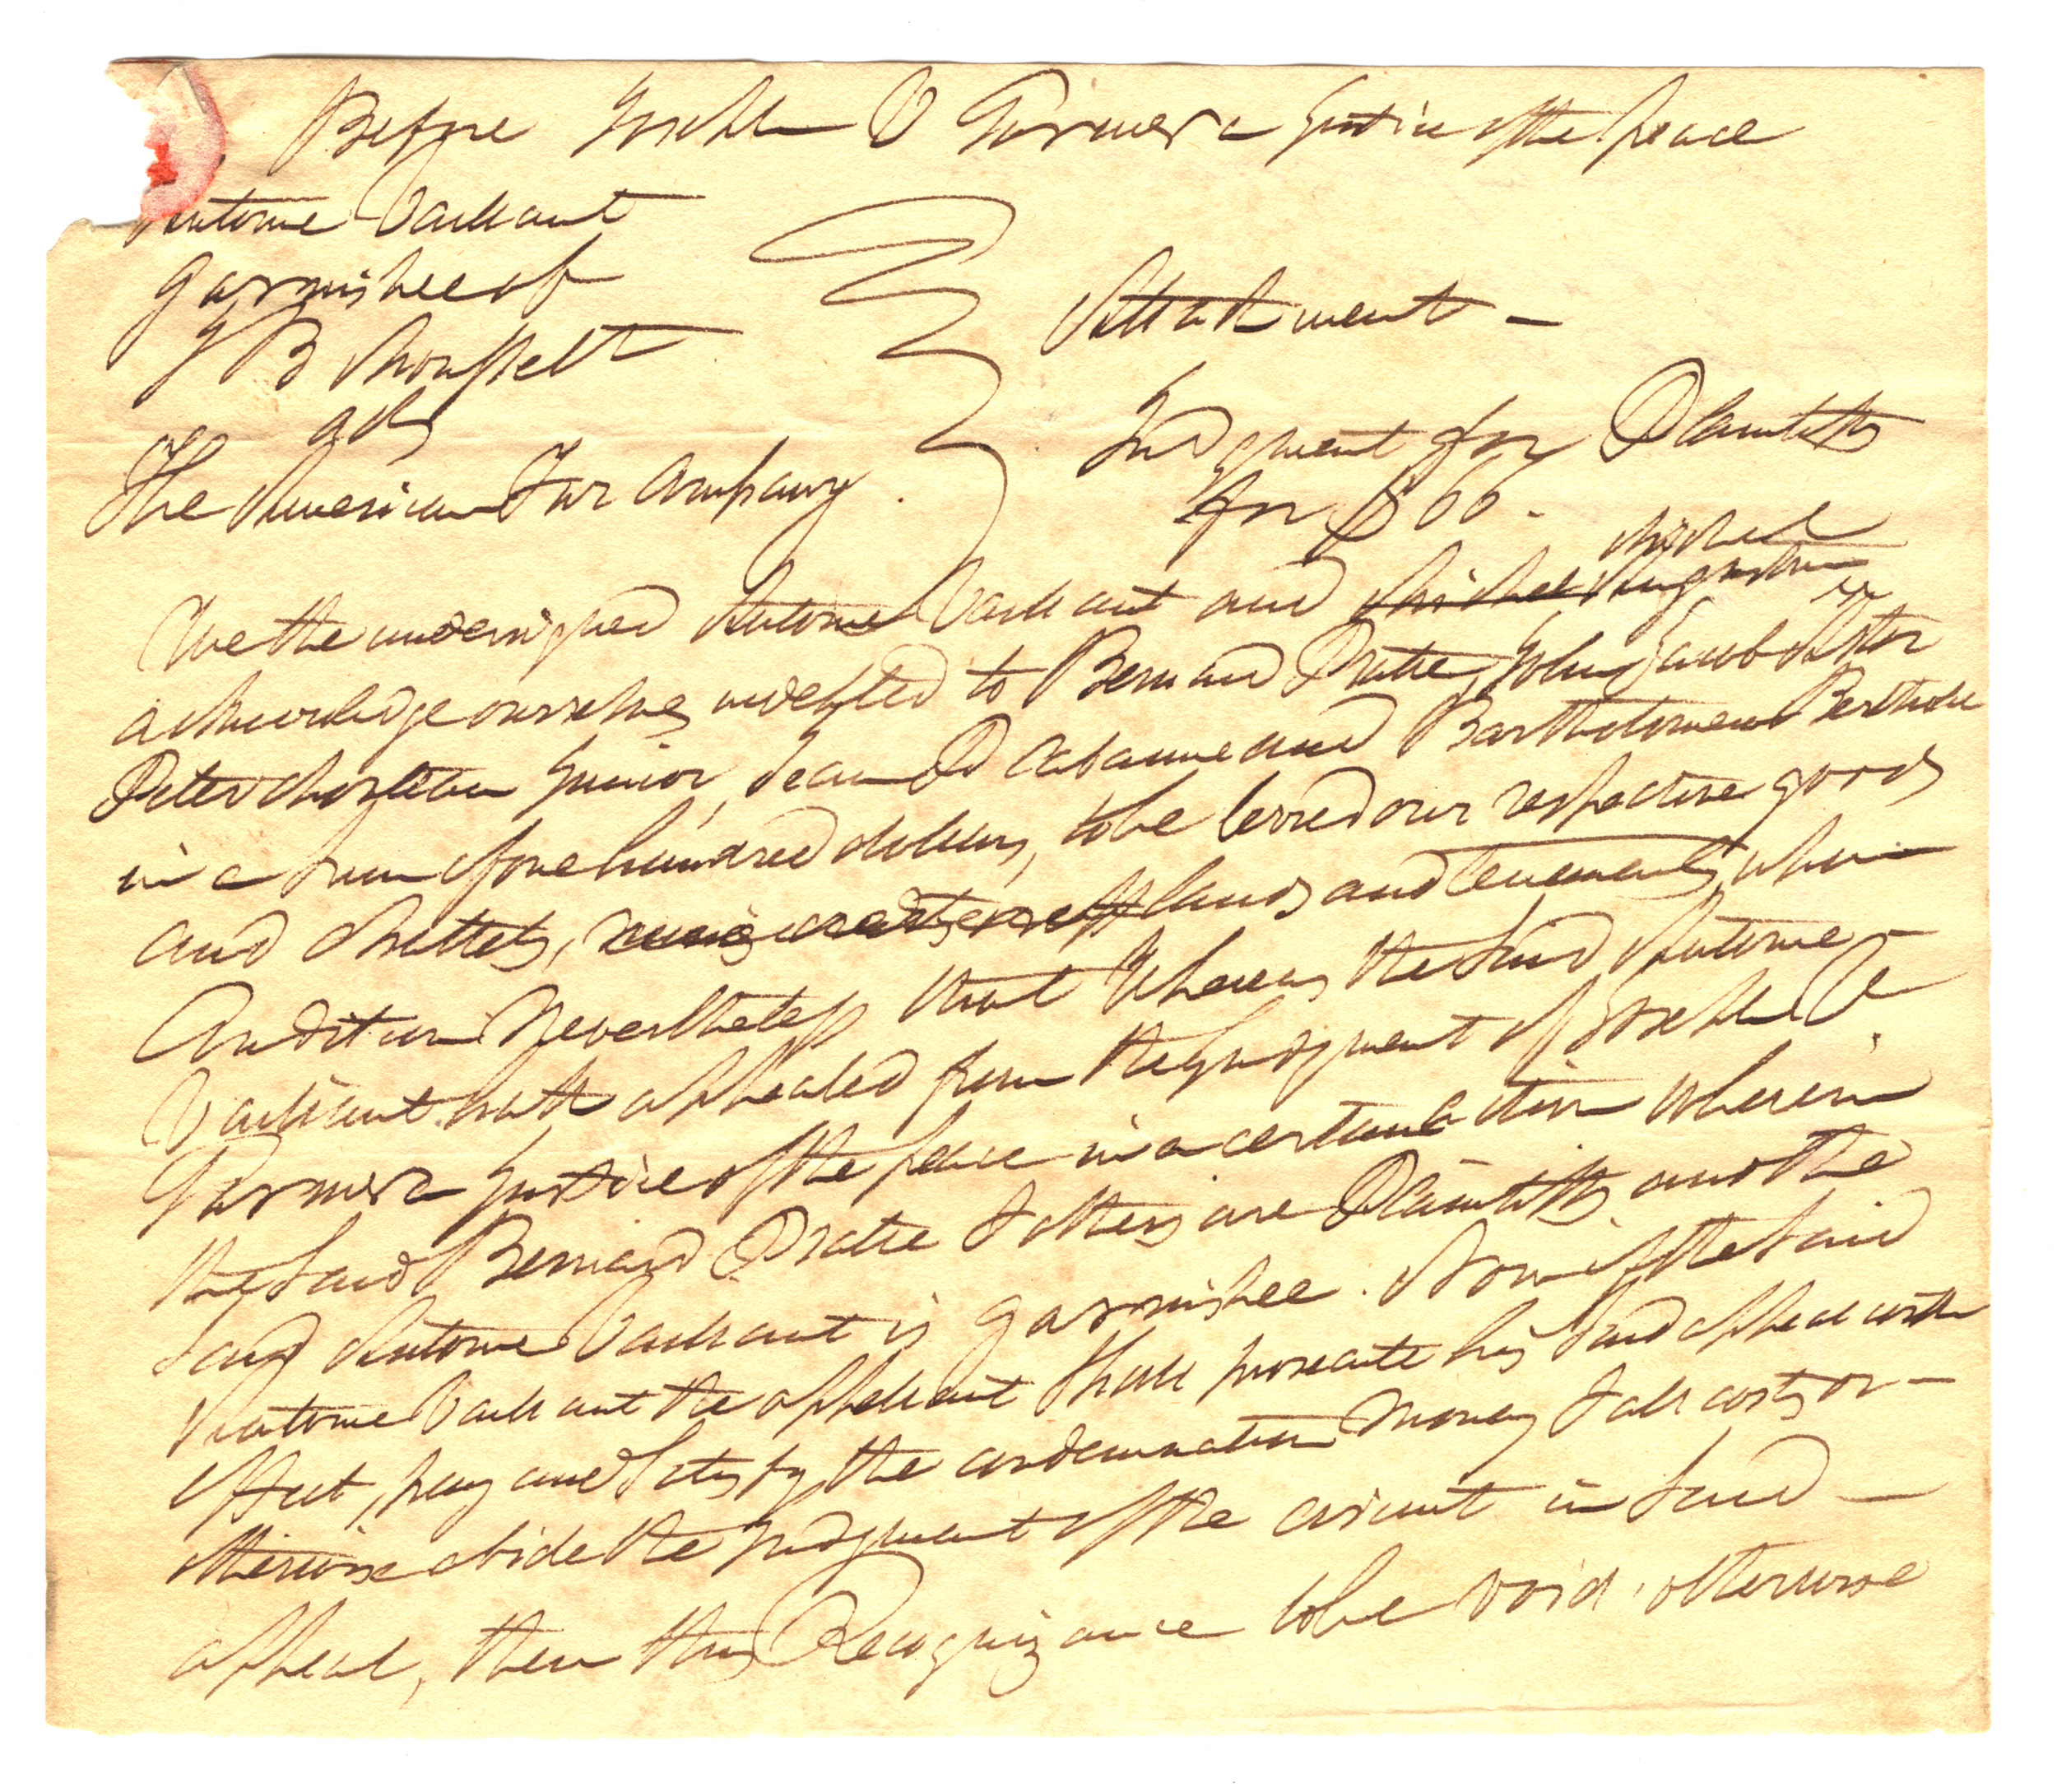 Before Joseph V Garnier a Justice of the peace
Antoine Vaillant
garnishee of
J B
ads
The American Fur Company
Attachment —
Judgment for Plaintiffs
for $66.
Michel
We the undersigned Antoine Vaillant and Michel Augustin
acknowledge ourselves indebted to Bernard Pratte, John Jacob Astor
Peter Chouteau Junior, Jean P Cabanne and Bartholomew Berthold
in a sum of one hundred dollars, to be levied our respective goods
and Chattels, lands and tenements, upon
Condition Nevertheless that Whereas the said Antoine —
Vaillant hath appealed from the Judgment of Joseph V.
Garnier a Justice of the peace in a certain action wherein
the said Bernard Pratte & others are Plaintiffs and the
said Antoine Vaillant is garnishee. Now if the said
Antoine Vaillant the appellant shall prosecute his said appeal with
effect, pay and satisfy the condemnation money & all costs or —
otherwise abide the Judgment of the circuit in said —
appeal, then this Recognizance to be void, otherwise